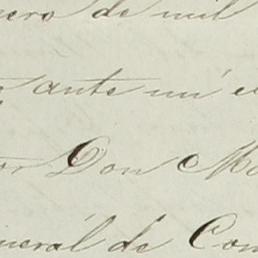 nero de mil
ante mí e
or Don M
neral de Con